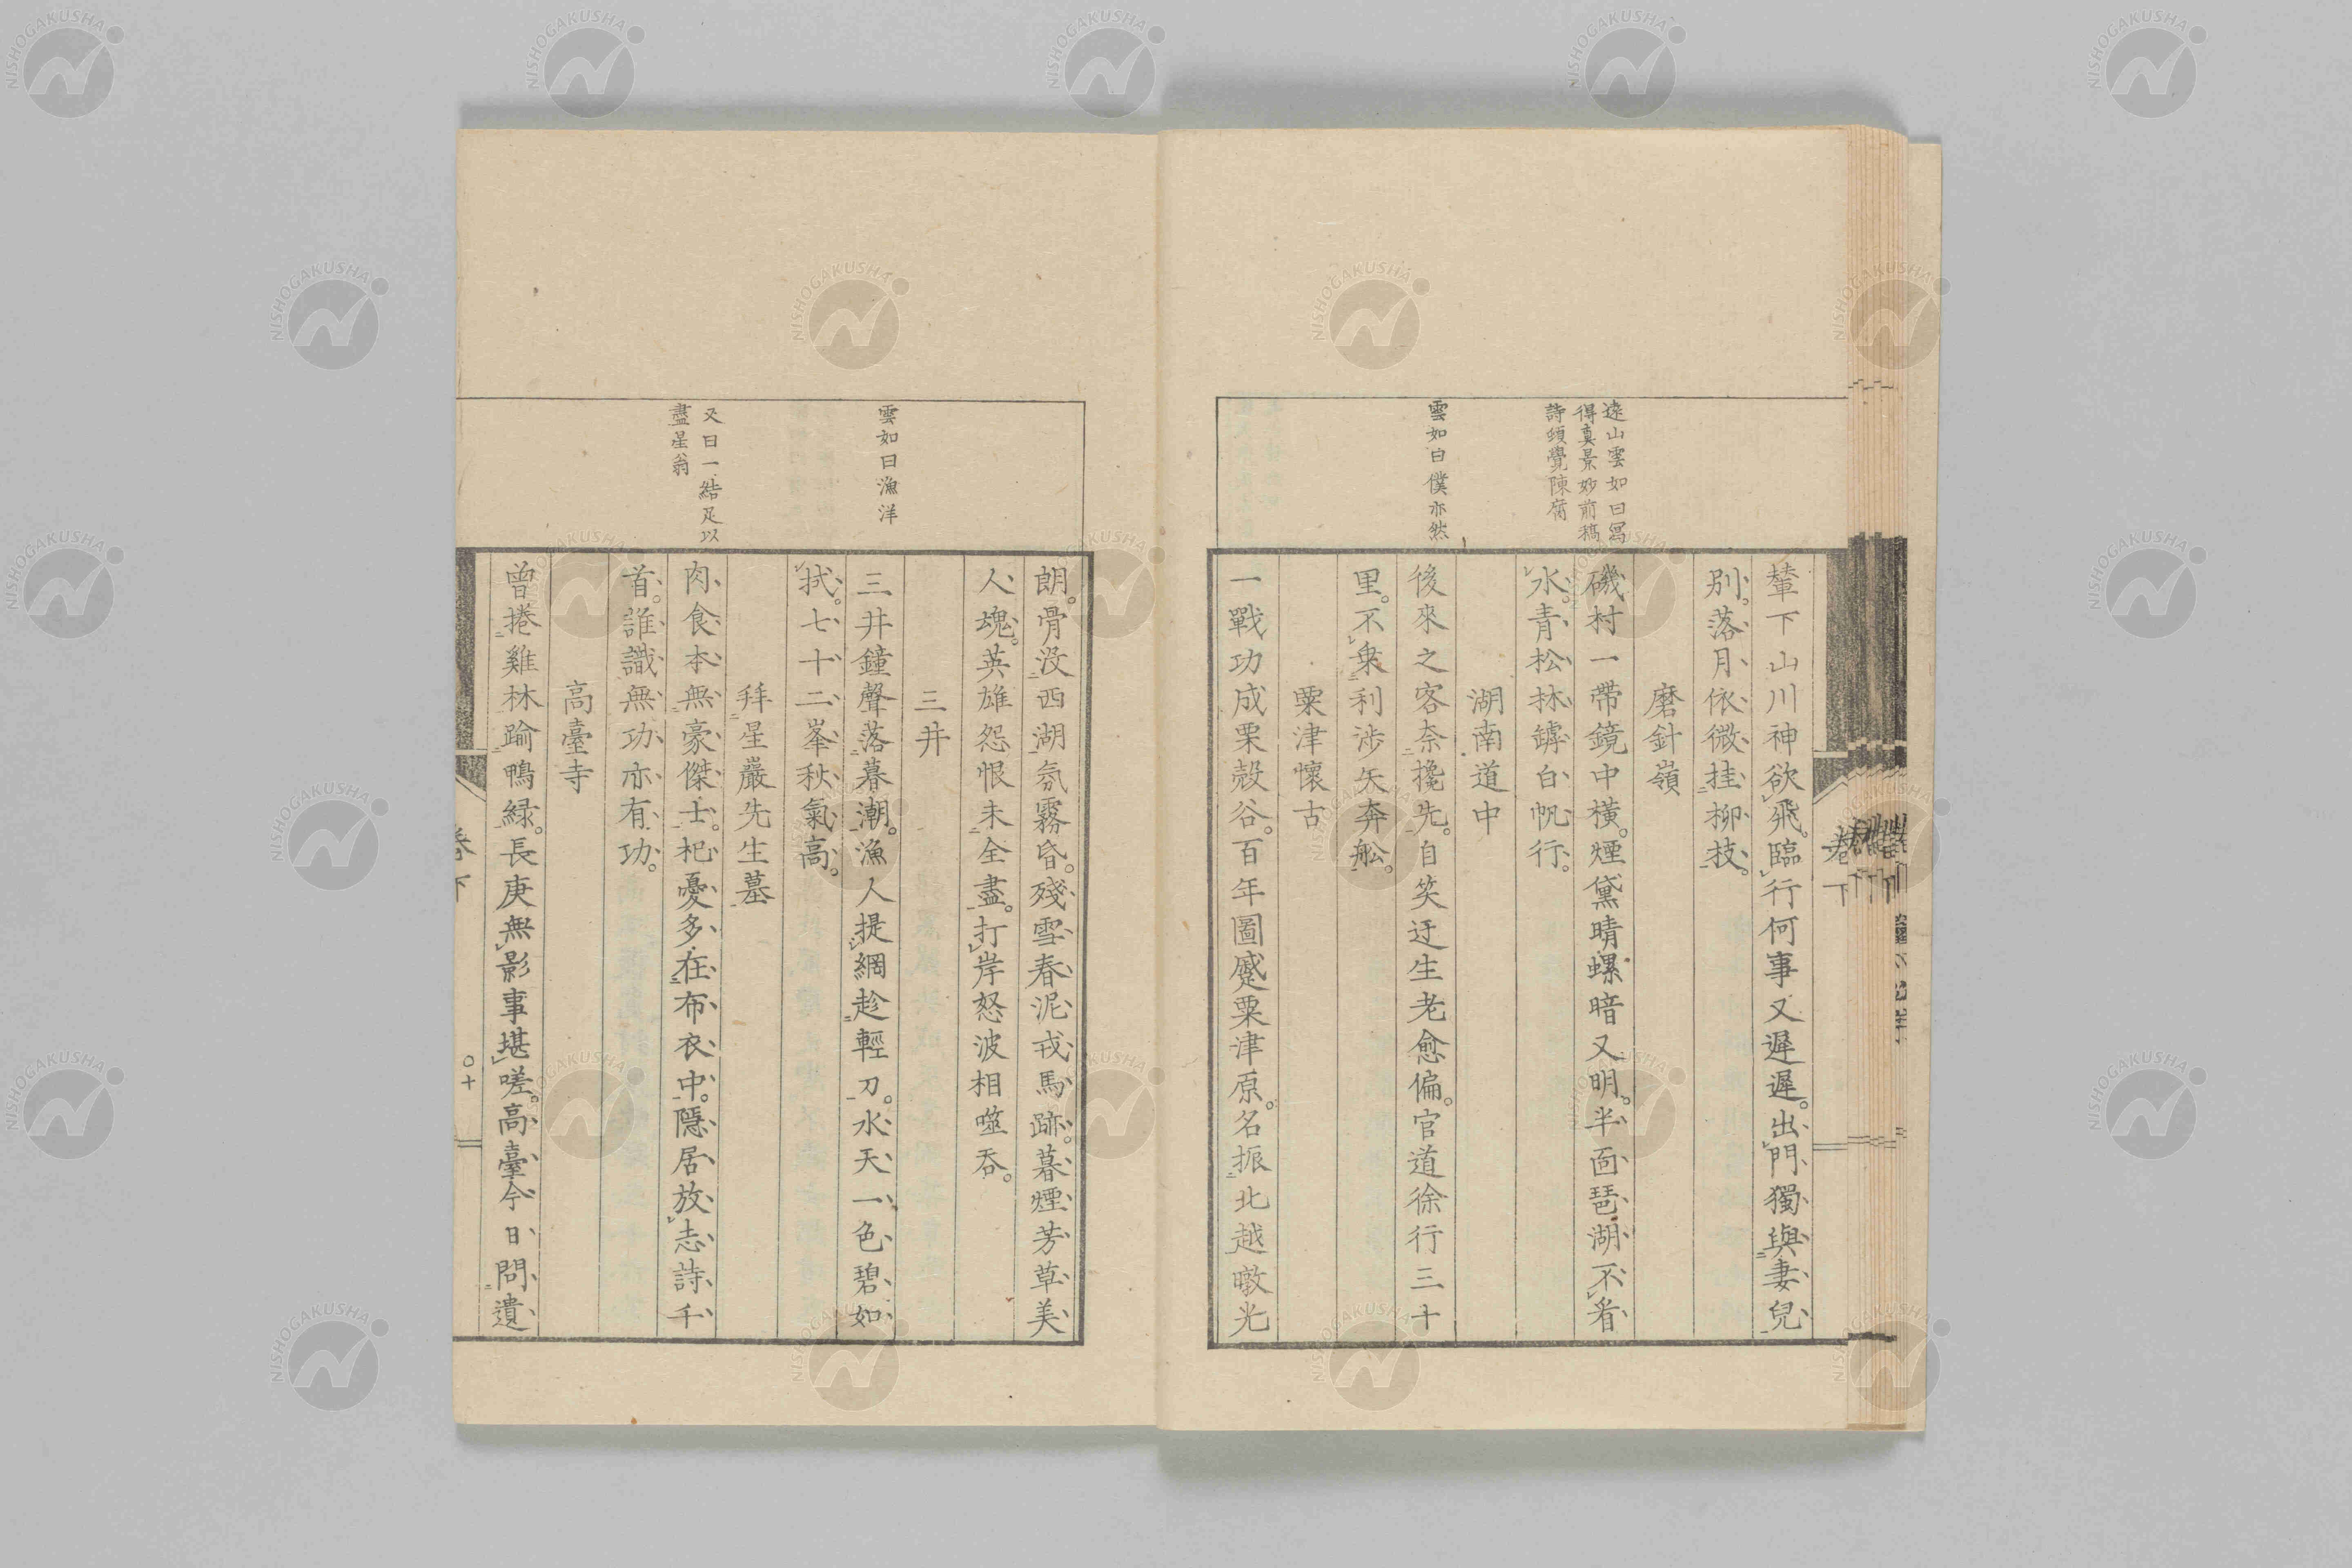 遠山雲如曰寫
得眞景妙前稿
詩頓覺陳腐
雲如曰僕亦然
輦下山川神欲飛。臨行何事又遲遲。出門獨與妻兒
別。落月依微挂柳枝。
磨針嶺
磯村一帶鏡中橫。煙黛晴螺暗又明。半面琶湖不看
水。青松林罅白帆行。
湖南道中
後來之客奈攙先。自笑迂生老愈偏。官道徐行三十
里。不乗利涉矢奔舩。
粟津懷古
一戰功成栗殼谷。百年圖蹙粟津原。名振北越暾光
卷下
雲如曰漁洋
又曰一結足以
盡星翁
朗。骨沒西湖氛霧昏。殘雪春泥戎馬跡。暮煙芳草美
人魂。英雄怨恨未全盡。打岸怒波相噬吞。
三井
三井鐘聲落暮潮。漁人提網趁輕刀。水天一色碧如
拭。七十二峯秋氣高。
拜星巖先生墓
肉食本無豪傑士。杞憂多在布衣中。隱居放志詩千
首。誰識無功亦有功。
高臺寺
曾捲雞林踰鴨綠。長庚無影事堪嗟。高臺今日問遺
卷下
○十
NISHOGAKUSHA